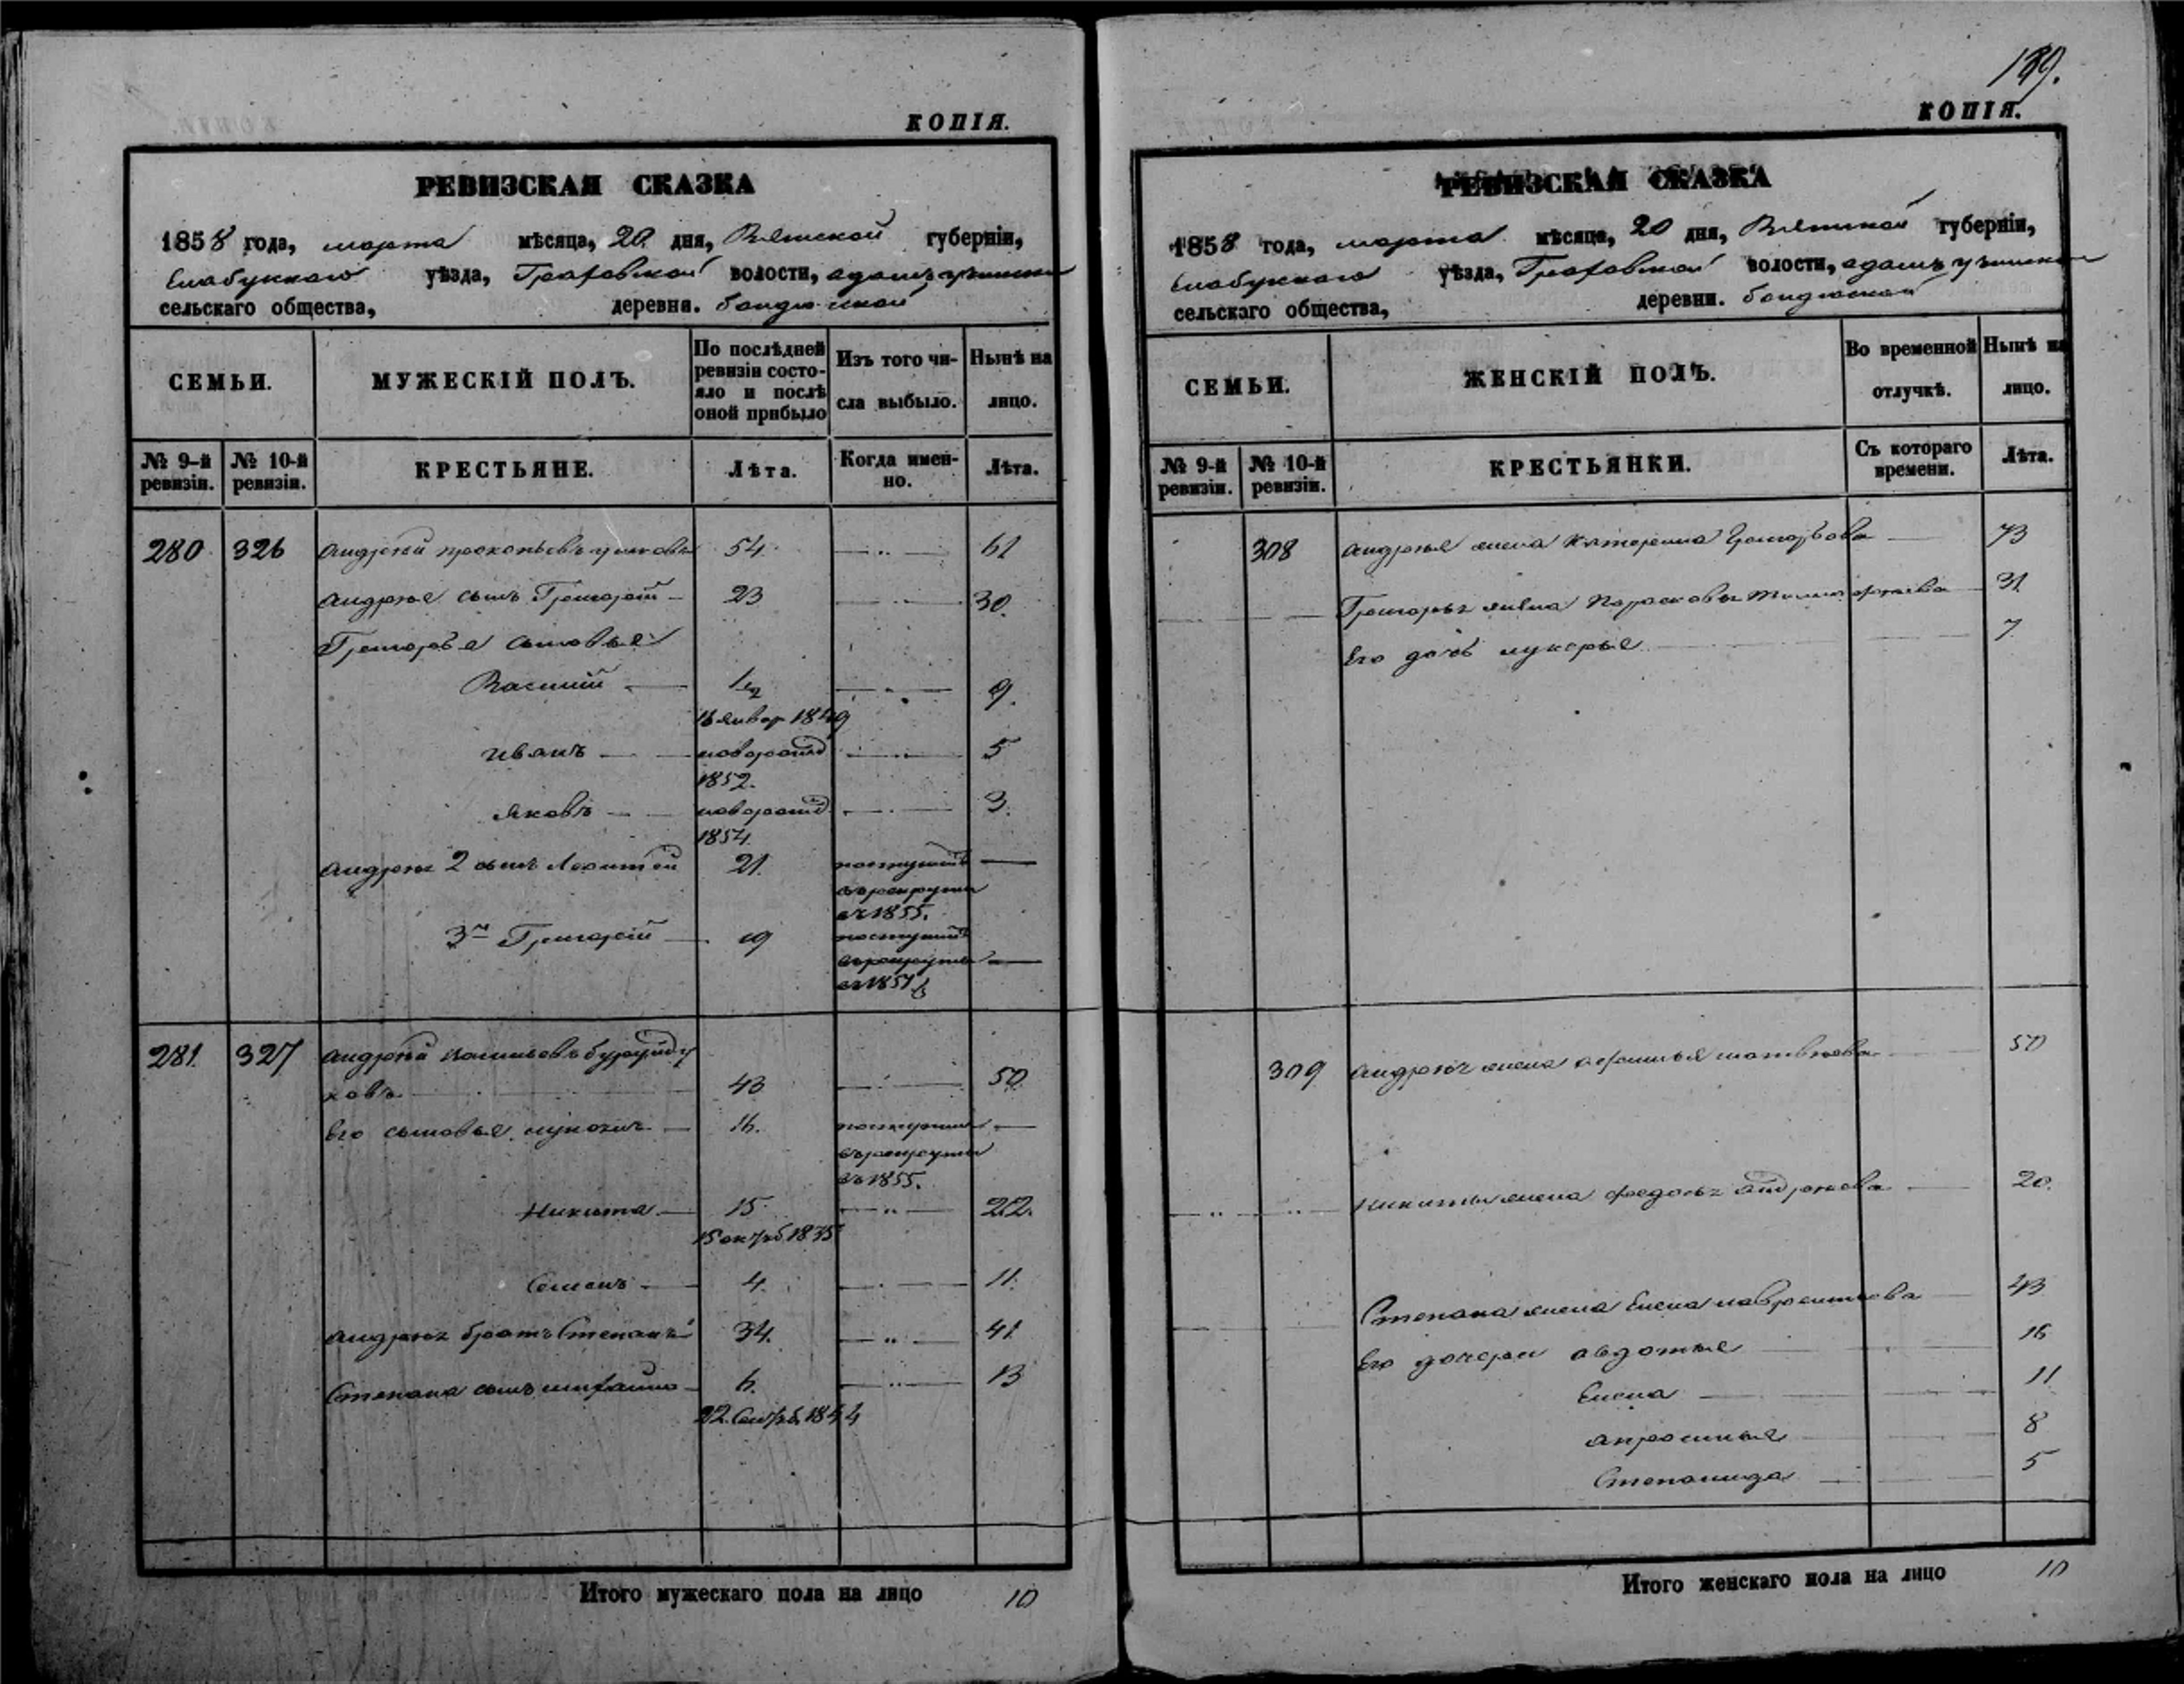 КОПІЯ.
РЕВИЗСКАЯ СКАЗКА
1858 года, марта мѣсяца, 20 дня, Вятской губерніи,
Елабужскаго уѣзда, Граховской волости,
сельскаго общества, деревни.
СЕМЬИ.
МУЖЕСКІЙ ПОЛЪ.
По послѣдней ревизіи состояло и послѣ оной прибыло
Изъ того числа выбыло.
Нынѣ на лицо.
№ 9-й ревизіи.
№ 10-й ревизіи.
КРЕСТЬЯНЕ.
Лѣта.
Когда именно.
Лѣта.
280 326 Андрей Прокопьевъ 54 61
Андрея сынъ Григорій 23 30.
Григорья сыновья
Василій 1/2 9.
16 январ 1849
Иванъ новорожд 5
1852.
Яковъ новорожд 3.
1854.
Андрея 2 сынъ 21. поступилъ
въ рекруты
въ 1855.
3й Григорій 19 поступилъ
въ рекруты
въ 1851
281. 327 Андрей Васильевъ Бурунду
ковъ 43 50
Его сыновья 16. поступилъ
въ рекруты
въ 1855.
Никита 15. 22.
15 октяб. 1835
Семенъ 4. 11.
Андрея братъ Степанъ 34. 41.
Степана сынъ Михайло 6. 13
22. Сентяб. 1844
Итого мужескаго пола на лицо 10
189.
КОПІЯ.
РЕВИЗСКАЯ СКАЗКА
1858 года, марта мѣсяца, 20 дня, Вятской губерніи,
Елабужскаго уѣзда, Граховской волости,
сельскаго общества, деревни.
СЕМЬИ.
ЖЕНСКІЙ ПОЛЪ.
Во временной отлучкѣ.
Нынѣ на лицо.
№ 9-й ревизіи.
№ 10-й ревизіи.
КРЕСТЬЯНКИ.
Съ котораго времени.
Лѣта.
308 Андрея жена Катерина Григорьева 73
Григорья жена Парасковья 31.
Его дочь Лукерья 7
309 Андрея жена Матвѣева 50
Никиты жена Федосья Андреева 20.
Степана жена Елена Лаврентьева 43
Его дочери Авдотья 16
Елена 11
8
Степанида 5
Итого женскаго пола на лицо 10